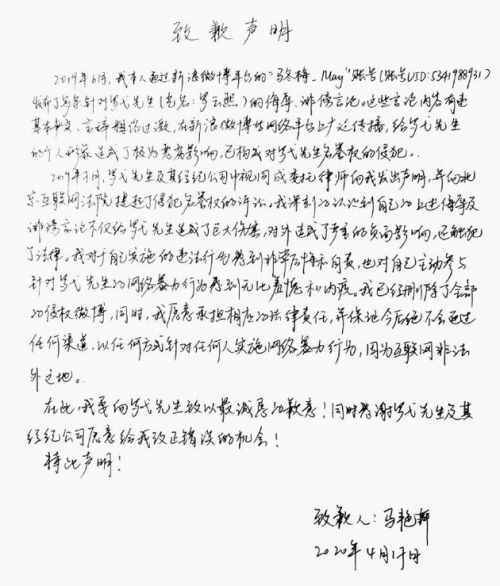 致歉声明
2019年6月,我本人通过新浪微博平台的"马冬梅-May"账号(账号UID:5341988931)
发布了多条针对罗弋先生(艺名:罗云熙)的侮辱、诽谤言论。这些言论内容有违
基本事实、言辞粗俗过激,在新浪微博等网络平台上广泛传播,给罗弋先生
的个人形象造成了极为恶劣影响,已构成对罗弋先生名誉权的侵犯。
2019年7月,罗弋先生及其经纪公司中视同成委托律师向我发出声明,并向北
京互联网法院提起了侵犯名誉权的诉讼。我深刻的认识到自己的上述侮辱及
诽谤言论不仅给罗弋先生造成了巨大伤害,对外造成了严重的负面影响,还触犯
了法律。我对于自己实施的违法行为感到非常后悔和自责,也对自己主动参与
针对罗弋先生的网络暴力行为感到无比羞愧和内疚。我已经删除了全部
的侵权微博,同时,我愿意承担相应的法律责任,并保证今后绝不会通过
任何渠道、以任何方式针对任何人实施网络暴力行为,因为互联网非法
外之地。
在此,我要向罗弋先生致以最诚恳的歉意!同时感谢罗弋先生及其
经纪公司愿意给我改正错误的机会!
特此声明!
致歉人:马艳
2020年4月17日